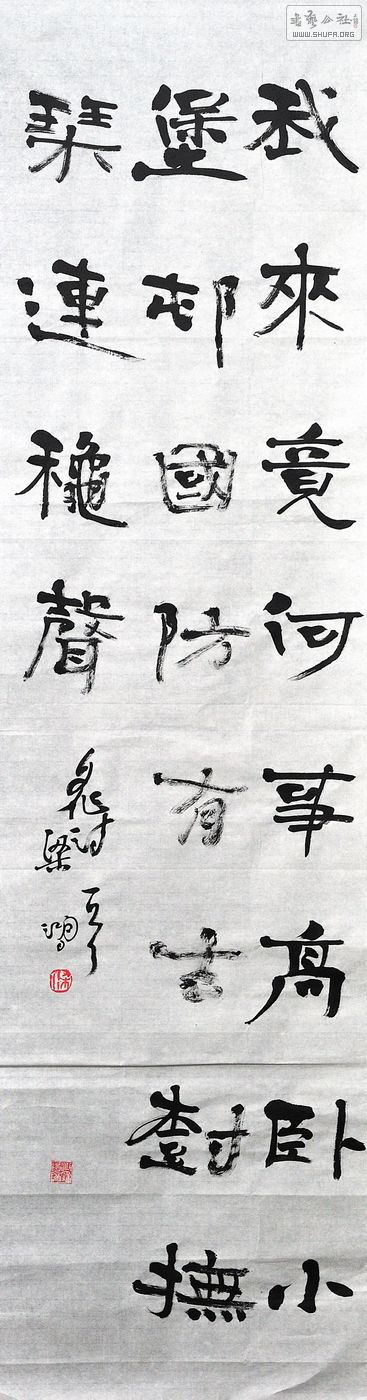 書法公社
WWW.SHUFA.ORG
我來竟何事高卧小
堡邨國防有古樹撫
琹連穐聲
詩梁